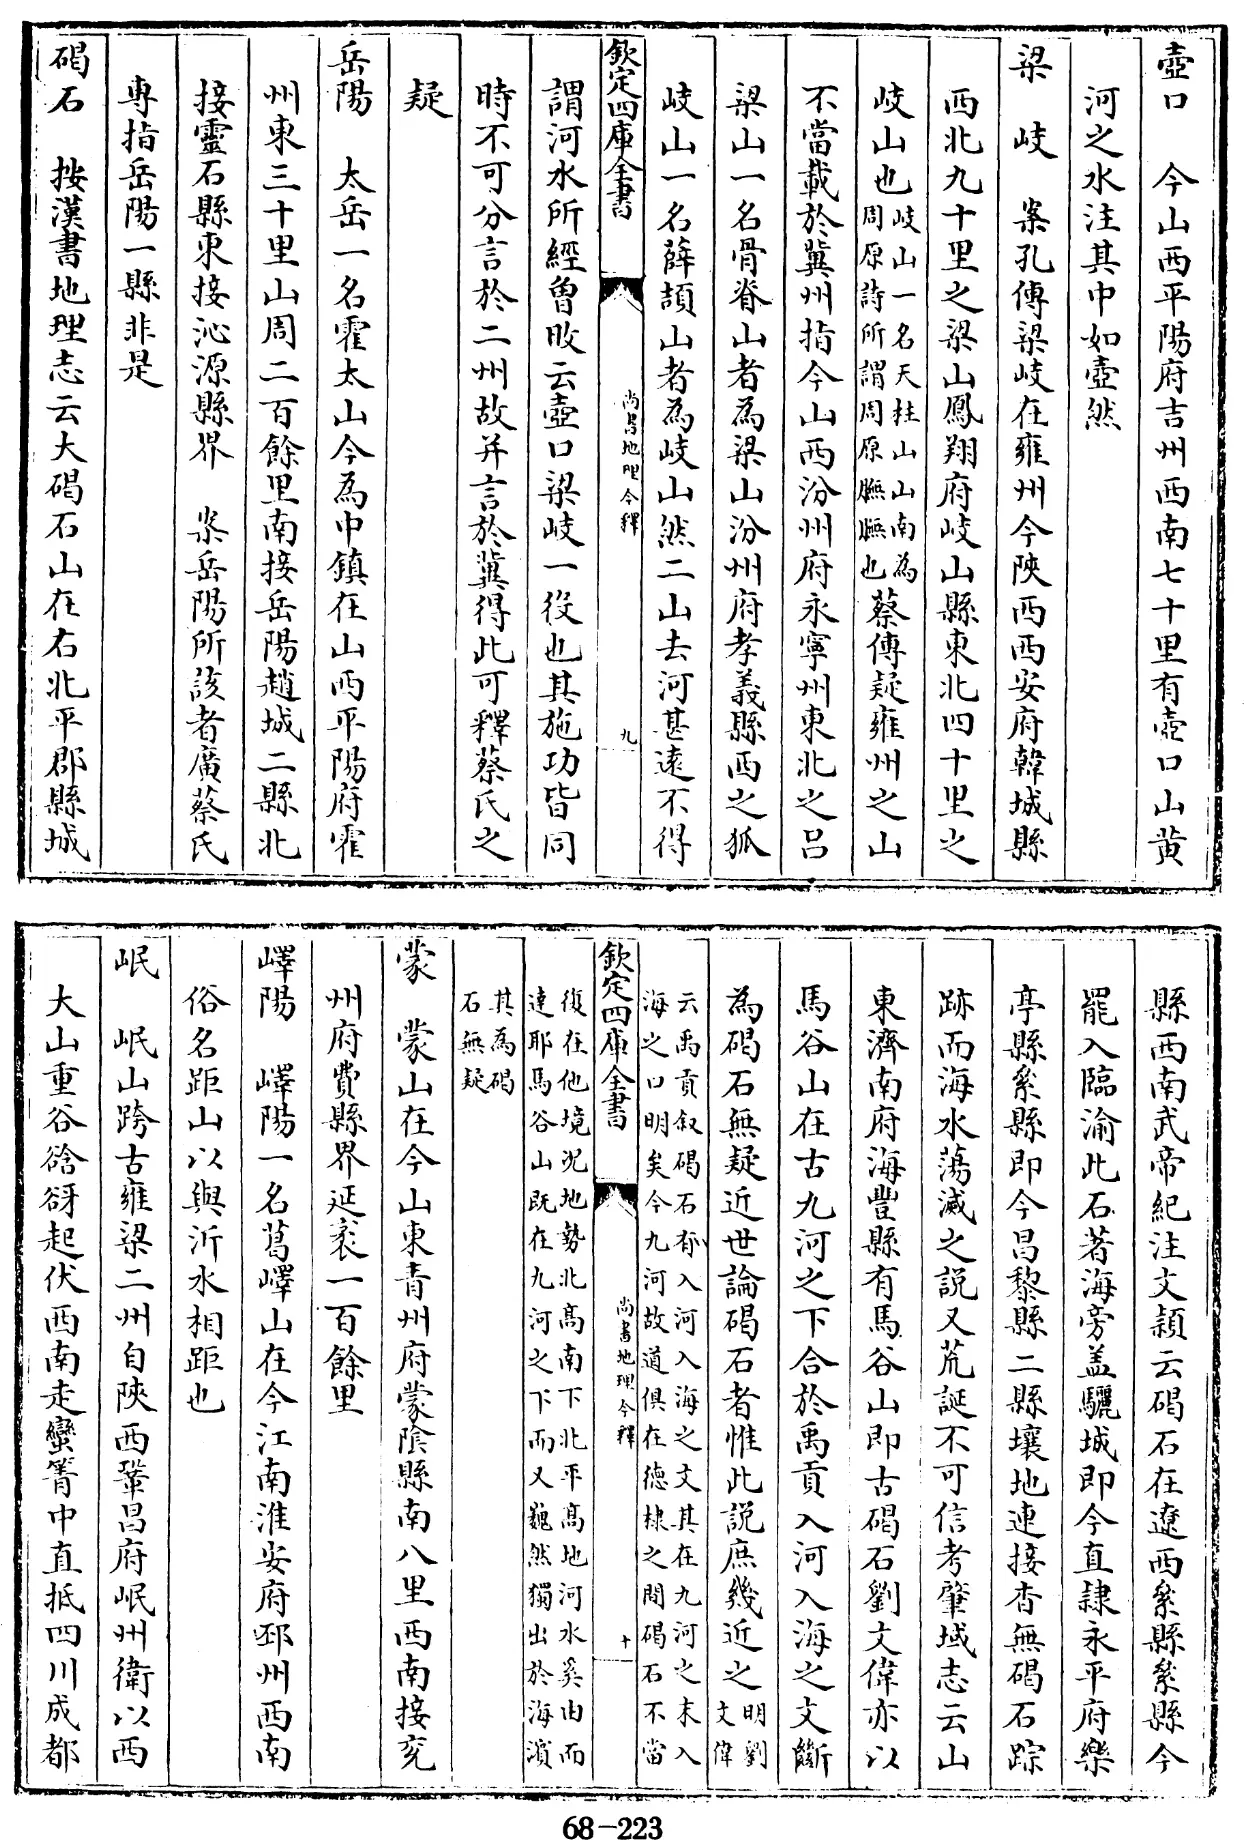 壺口　今山西平陽府吉州西南七十里有壺口山黄
河之水注其中如壺然
梁　岐　案孔傳梁岐在雍州今陜西西安府韓城縣
西北九十里之梁山鳳翔府岐山縣東北四十里之
岐山也岐山一名天柱山山南為周原詩所謂周原膴膴也蔡傳疑雍州之山
不當載於冀州指今山西汾州府永寧州東北之吕
梁山一名骨脊山者為梁山汾州府孝義縣西之狐
岐山一名薛頡山者為岐山然二山去河甚逺不得
欽定四庫全書
尚書地理今釋
九
謂河水所經曽旼云壺口梁岐一役也其施功皆同
時不可分言於二州故并言於冀得此可釋蔡氏之
疑
岳陽　太岳一名霍太山今為中鎮在山西平陽府霍
州東三十里山周二百餘里南接岳陽趙城二縣北
接靈石縣東接沁源縣界　案岳陽所該者廣蔡氏
專指岳陽一縣非是
碣石　按漢書地理志云大碣石山在右北平郡縣城
縣西南武帝紀注文穎云碣石在遼西絫縣絫縣今
罷入臨渝此石著海旁盖驪城即今直隷永平府樂
亭縣絫縣即今昌黎縣二縣壤地連接杳無碣石踪
跡而海水蕩滅之説又荒誕不可信考肇域志云山
東濟南府海豐縣有馬谷山即古碣石劉文偉亦以
馬谷山在古九河之下合於禹貢入河入海之文斷
為碣石無疑近世論碣石者惟此説庶幾近之明劉文偉
云禹貢叙碣石有入河入海之文其在九河之末入
海之口明矣今九河故道俱在德棣之間碣石不當
欽定四庫全書
尚書地理今釋
十
復在他境况地勢北高南下北平高地河水奚由而
逹耶馬谷山既在九河之下而又巍然獨出於海濵
其為碣石無疑
蒙　蒙山在今山東青州府蒙隂縣南八里西南接兖
州府費縣界延袤一百餘里
嶧陽　嶧陽一名葛嶧山在今江南淮安府邳州西南
俗名距山以與沂水相距也
岷　岷山跨古雍梁二州自陜西鞏昌府岷州衛以西
大山重谷谽谺起伏西南走蠻箐中直抵四川成都
68-223